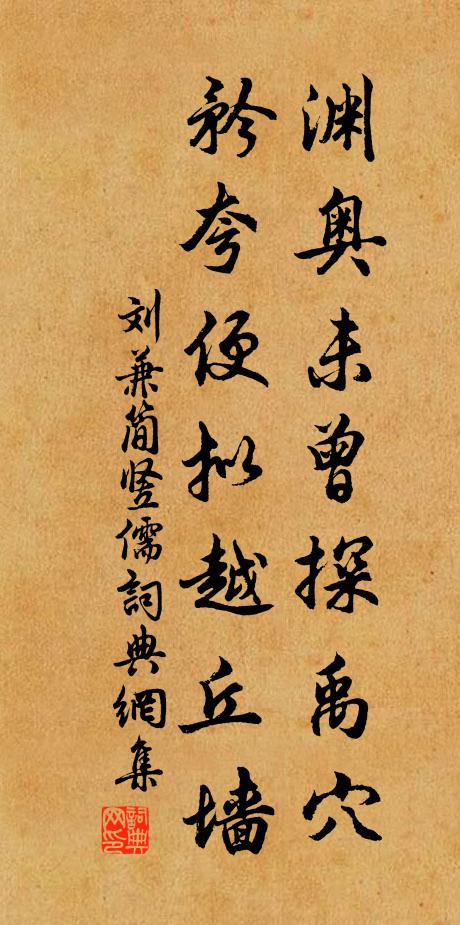 渊奥未曾探禹穴
矜夸便拟越丘墙
刘兼简竖儒詞典網集
詞典网印